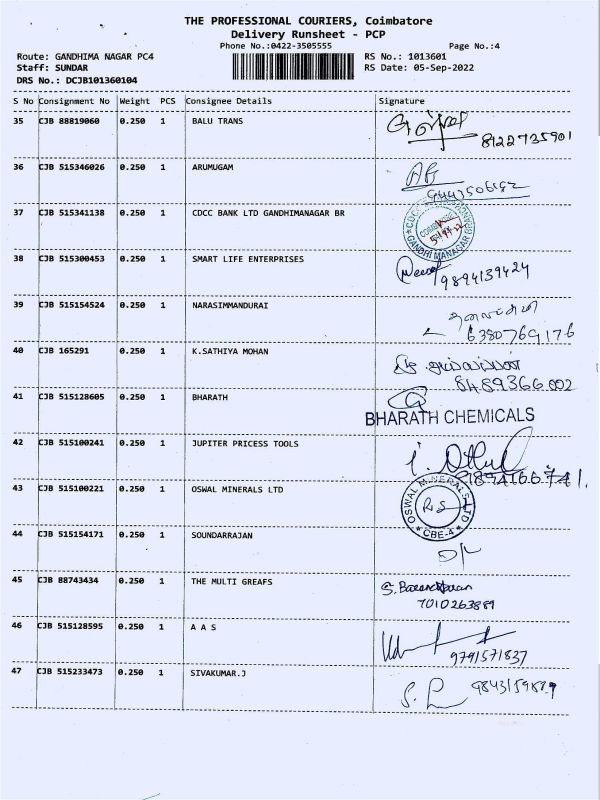 THE PROFESSIONAL COURIERS, Coimbatore
Delivery Runsheet - PCP
Phone No.:0422-3505555 Page No.:4
Route: GANDHIMA NAGAR PC4 RS No.: 1013601
Staff: SUNDAR RS Date: 05-Sep-2022
DRS No.: DCJB101360104
S No Consignment No Weight PCS Consignee Details Signature
35 CJB 88819060 0.250 1 BALU TRANS
8122735901
36 CJB 515346026 0.250 1 ARUMUGAM
37 CJB 515341138 0.250 1 CDCC BANK LTD GANDHIMANAGAR BR
GANDHI MANAGAR
38 CJB 515300453 0.250 1 SMART LIFE ENTERPRISES
9894139424
39 CJB 515154524 0.250 1 NARASIMMANDURAI
6380769176
40 CJB 165291 0.250 1 K.SATHIYA MOHAN
8489366002
41 CJB 515128605 0.250 1 BHARATH
BHARATH CHEMICALS
42 CJB 515100241 0.250 1 JUPITER PRICESS TOOLS
43 CJB 515100221 0.250 1 OSWAL MINERALS LTD
OSWAL MINERALS LTD
CBE-4
44 CJB 515154171 0.250 1 SOUNDARRAJAN
45 CJB 88743434 0.250 1 THE MULTI GREAFS
7010263889
46 CJB 515128595 0.250 1 A A S
9791571837
47 CJB 515233473 0.250 1 SIVAKUMAR.J